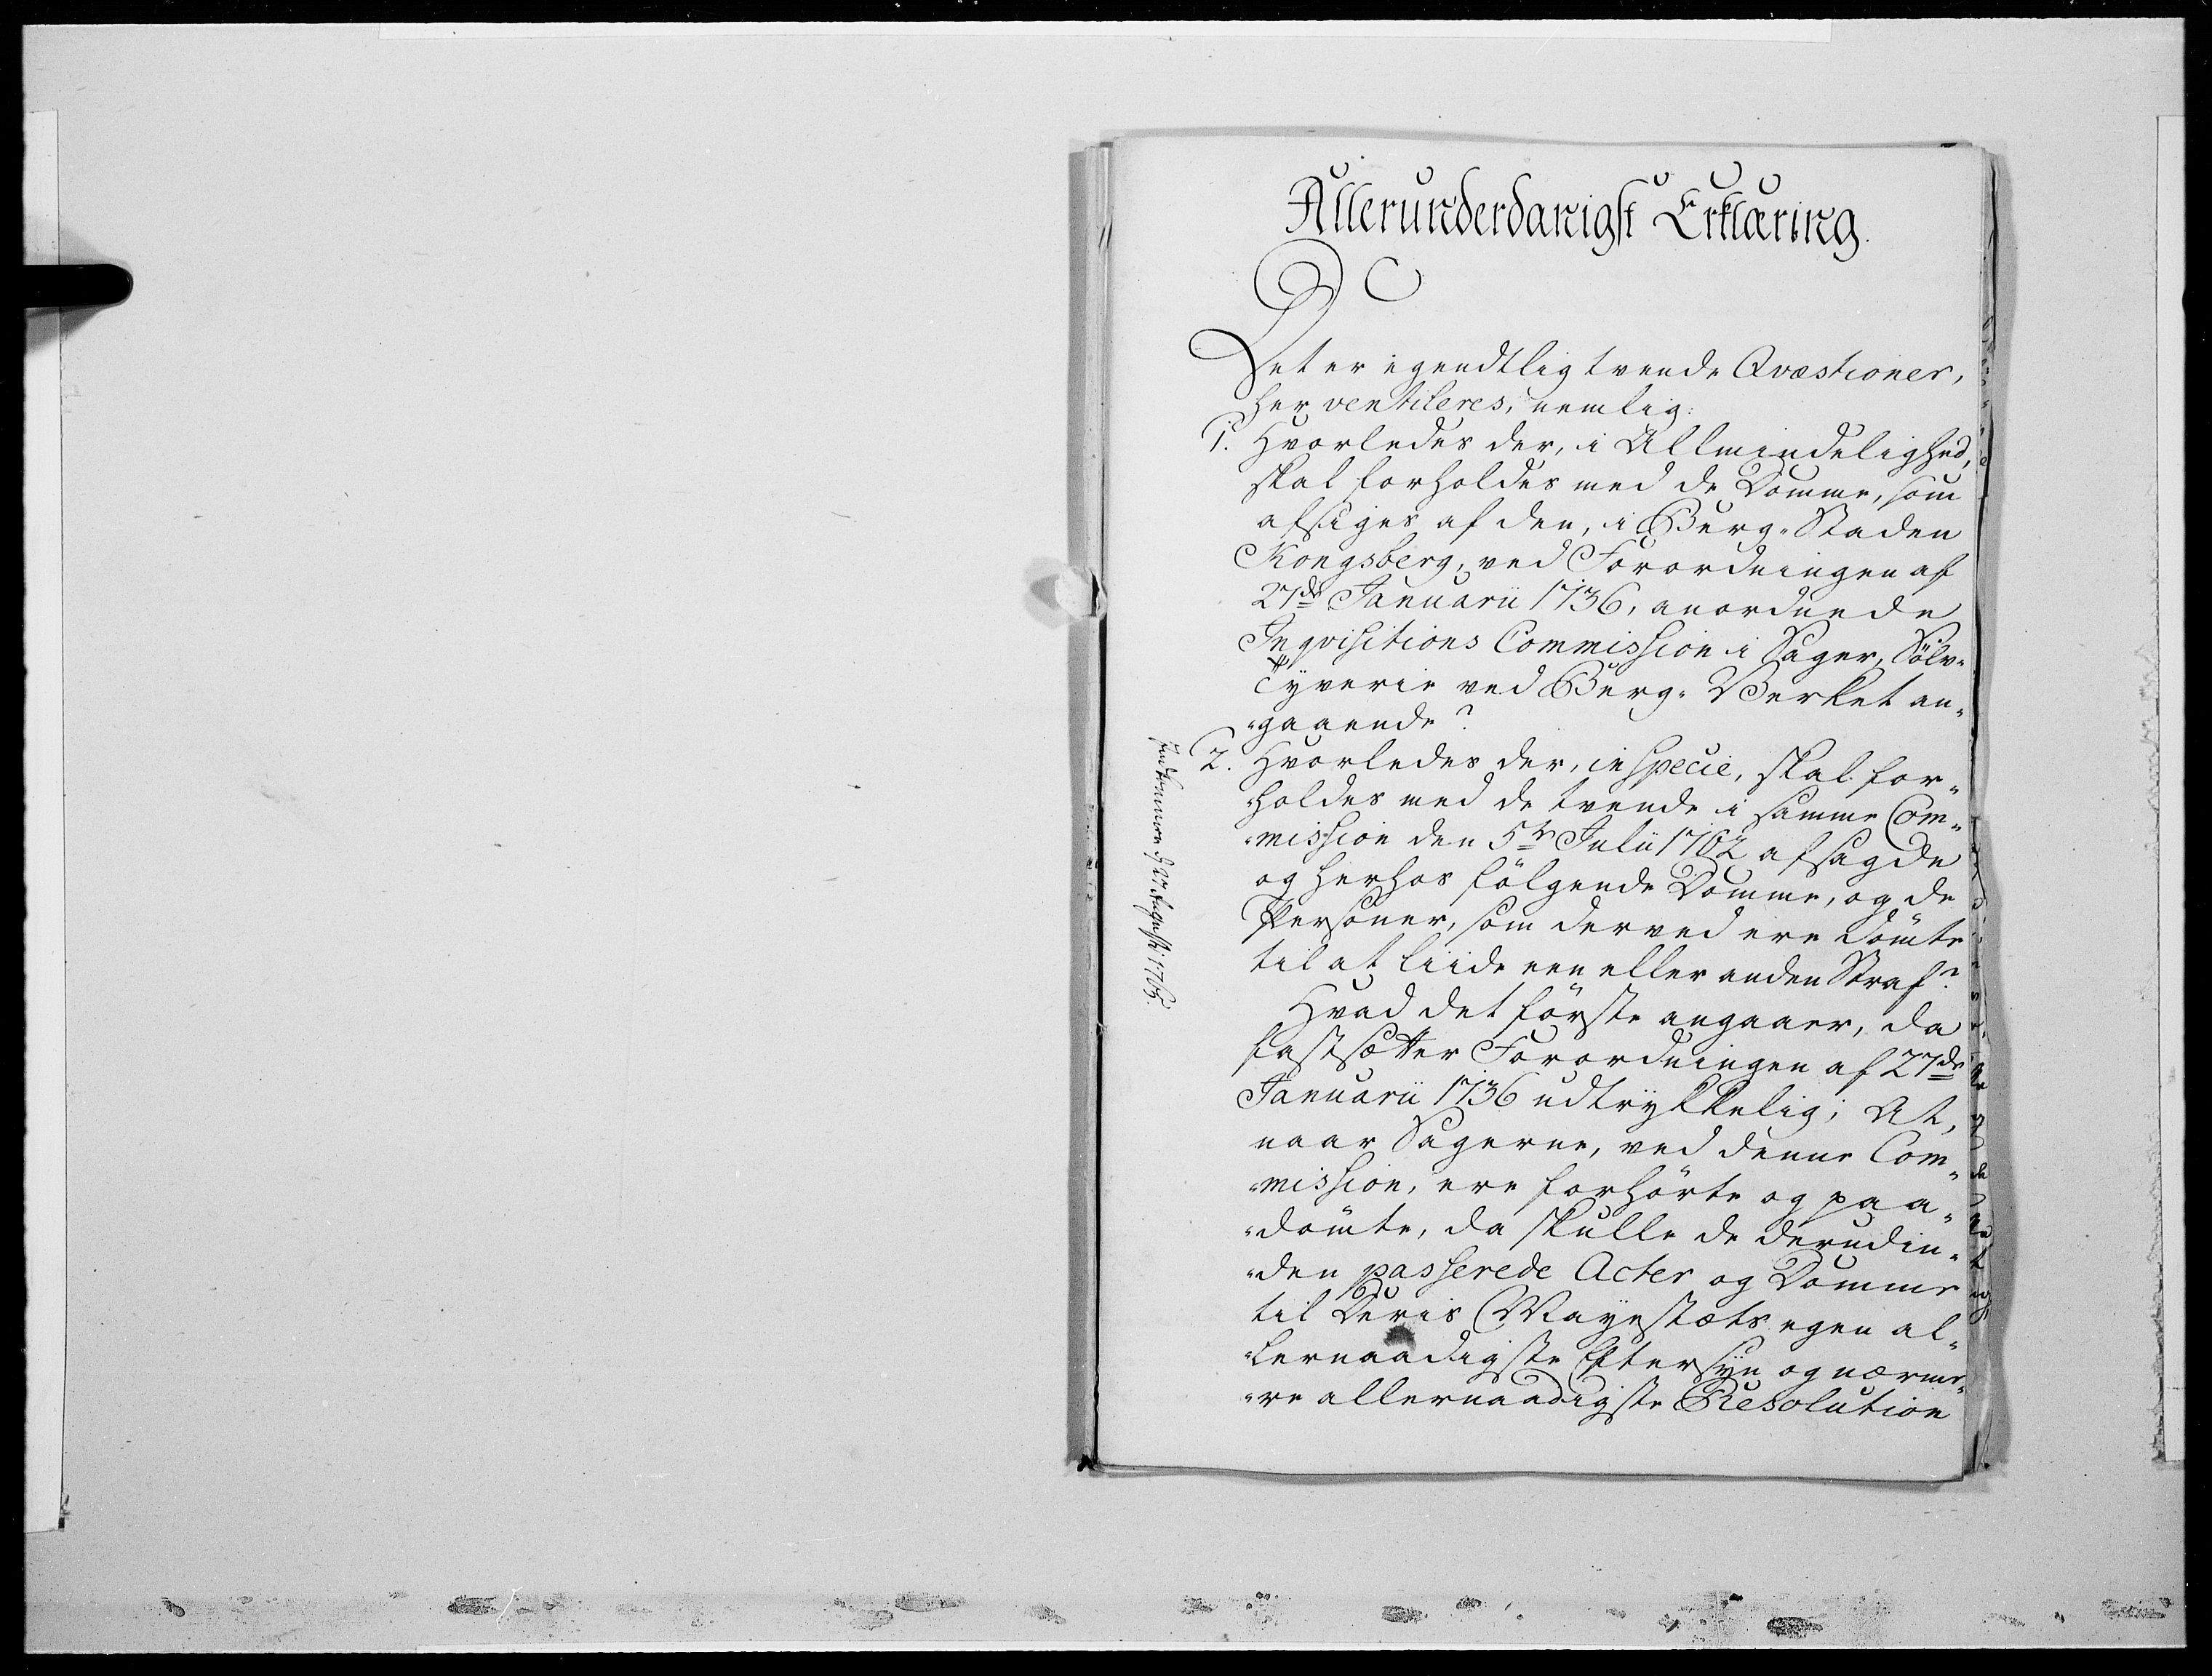 Allerunderdanigst Erklæring.
Det er egendtlig tvende Qvæstioner,
her ventileres, nemlig:
1. Hvorledes der, i Allmindelighed,
skal forholdes med de Domme, som
afsiges af den, i Berg-Staden
Kongsberg, ved Forordningen af
27de Januarii 1736, anordnede
Inqvisitions Commission i Sager, Sölv-
Tyverie ved Berg-Verket an-
-gaaende?
2. Hvorledes der, in specie, skal for-
-holdes med de tvende i samme Com-
-mission den 5te Julii 1762 afsagde
og herhos fölgende Domme, og de
Personer, som derved ere dömte
til at liide een eller anden Straf?
Hvad det förste angaaer, da
fastsætter Forordningen af 27de
Januarii 1736 udtrykkelig; At,
naar Sagerne, ved denne Com-
-mission, ere forhörte og paa-
-dömte, da skulle de derudin-
-den passerede Acter og Domme
til Deris Mayestæts egen al-
-lernaadigste Eftersyn og nærme-
-re allernaadigste Resolution
Indkommen August: 1763.